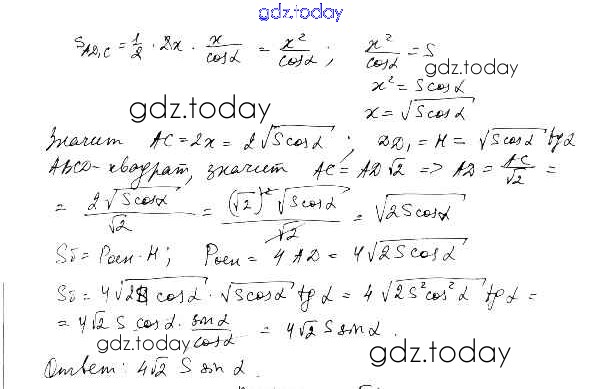 gdz.today
S_{AD₁C} = 1/2 · 2x · x/cosα = x²/cosα ; x²/cosα = S
gdz.today
x² = S cosα
gdz.today
x = √(S cosα)
Значит AC = 2x = 2√(S cosα) ; DD₁ = H = √(S cosα) tgα
ABCD - квадрат, значит AC = AD√2 => AD = AC/√2 =
= 2√(S cosα)/√2 = (√2)²√(S cosα)/√2 = √(2S cosα)
Sб = Pосн · H ; Pосн = 4AD = 4√(2S cosα)
Sб = 4√(2S cosα) · √(S cosα) tgα = 4√(2S²cos²α) tgα =
= 4√2 S cosα · sinα/cosα = 4√2 S sinα .
gdz.today
Ответ: 4√2 S sinα .